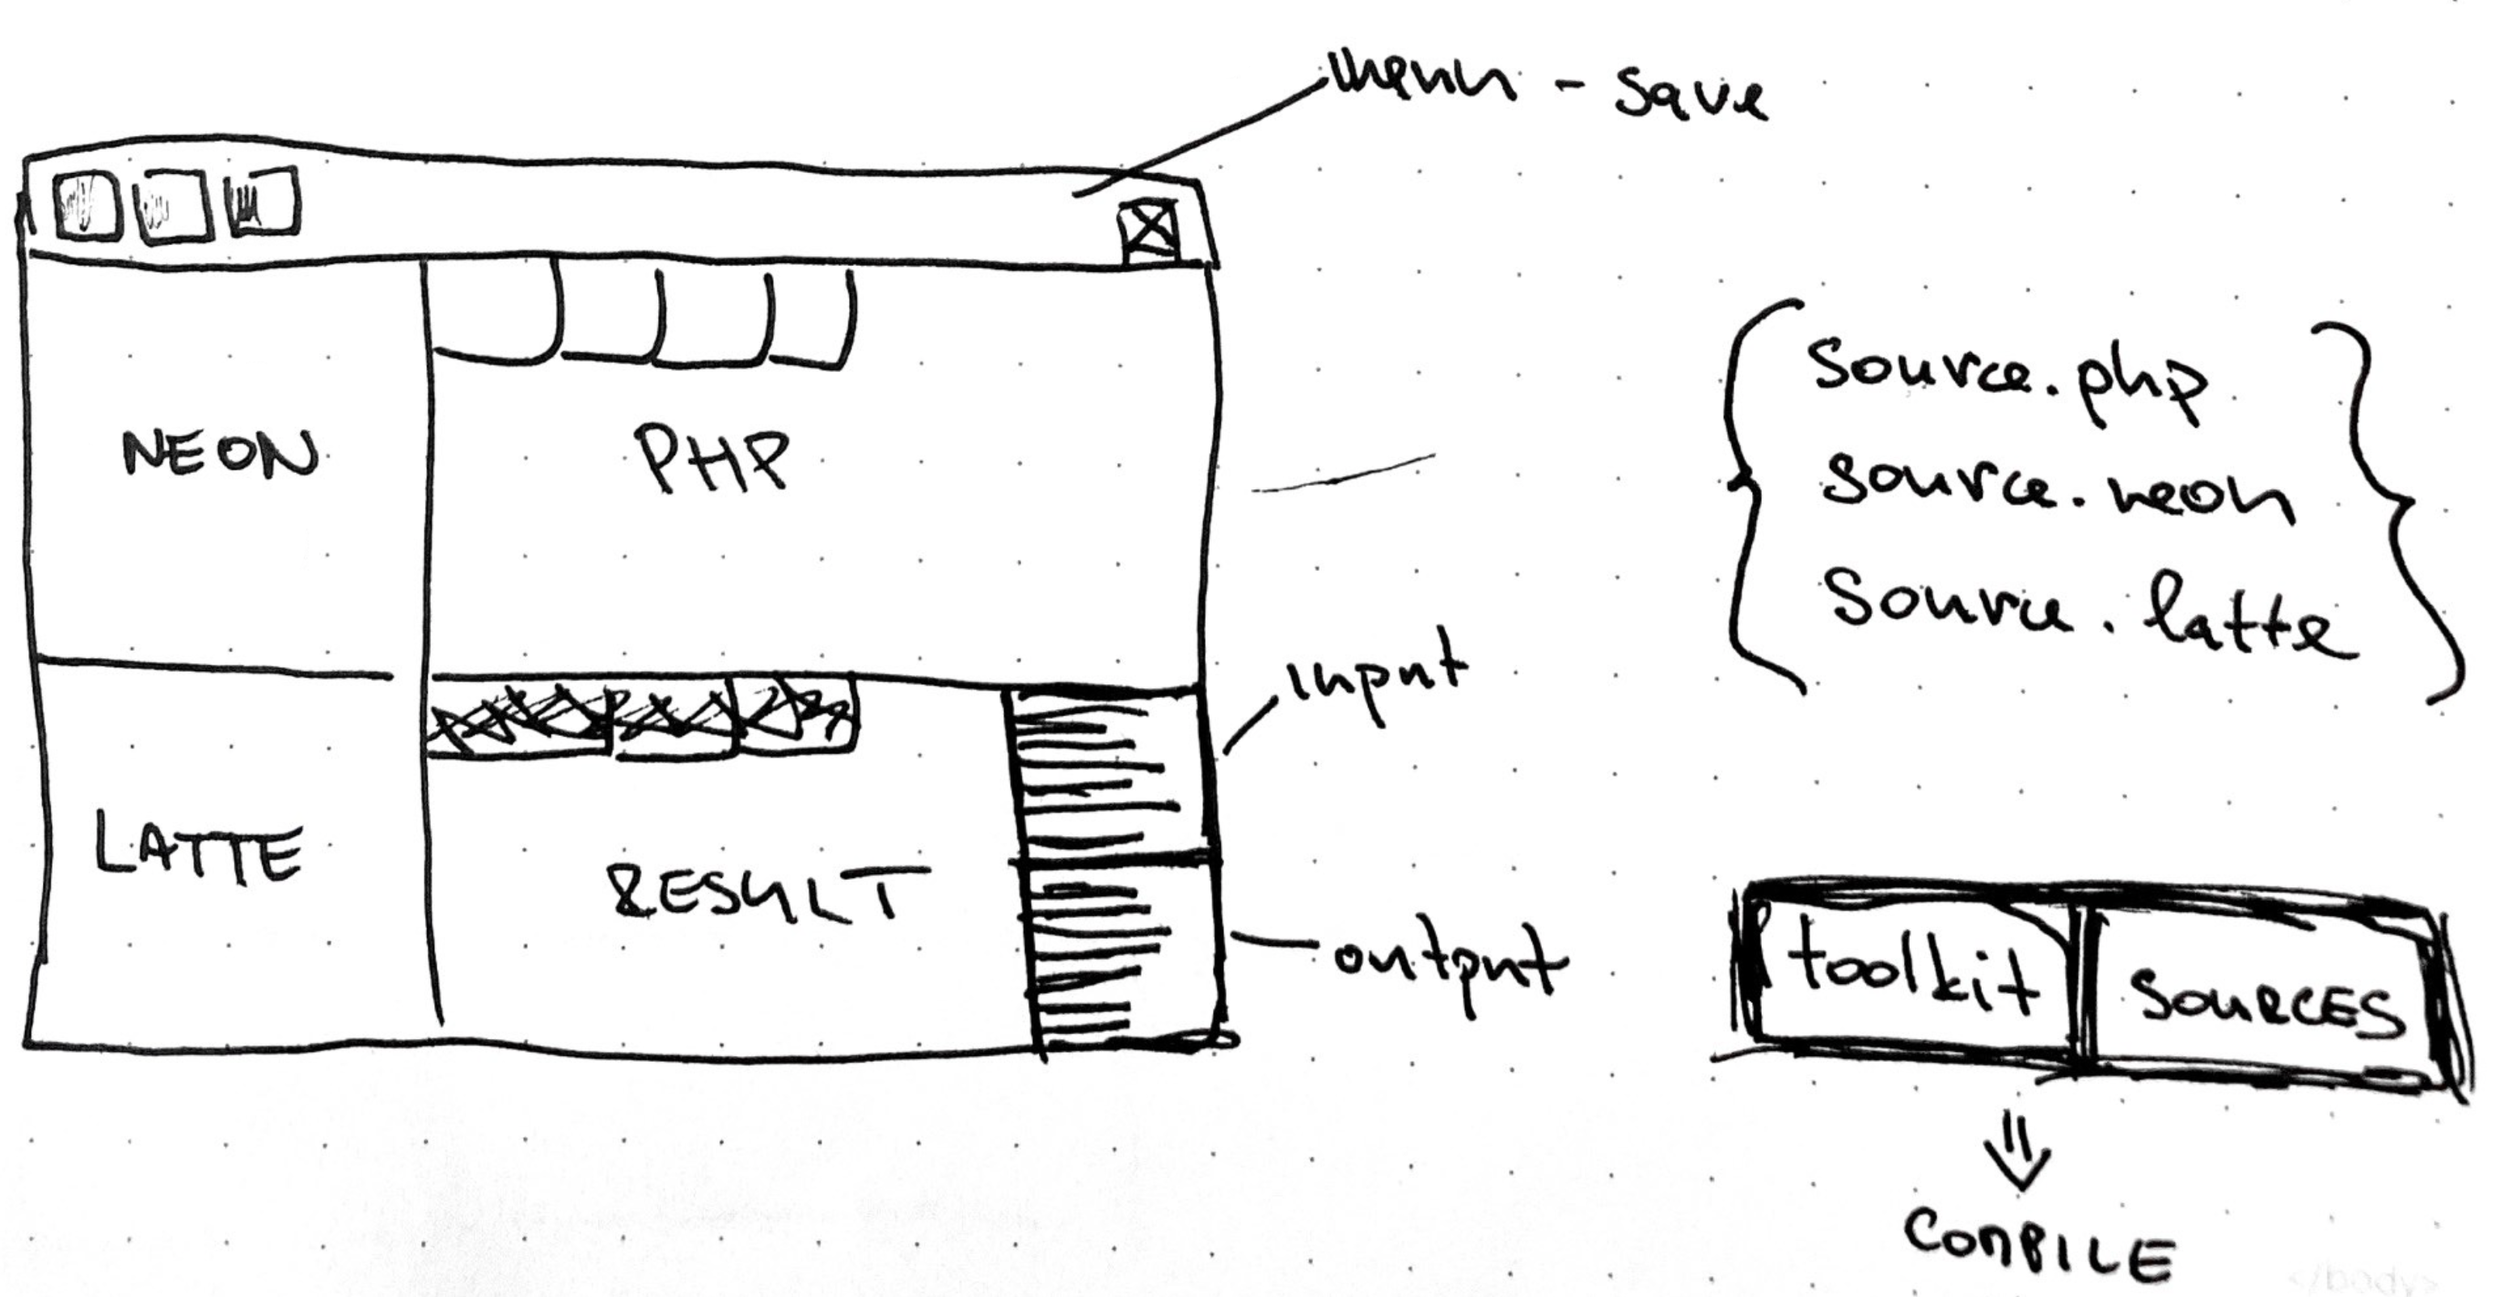 menu - save
NEON
PHP
source.php
source.neon
source.latte
input
LATTE
RESULT
output
toolkit
SOURCES
COMPILE
</body>